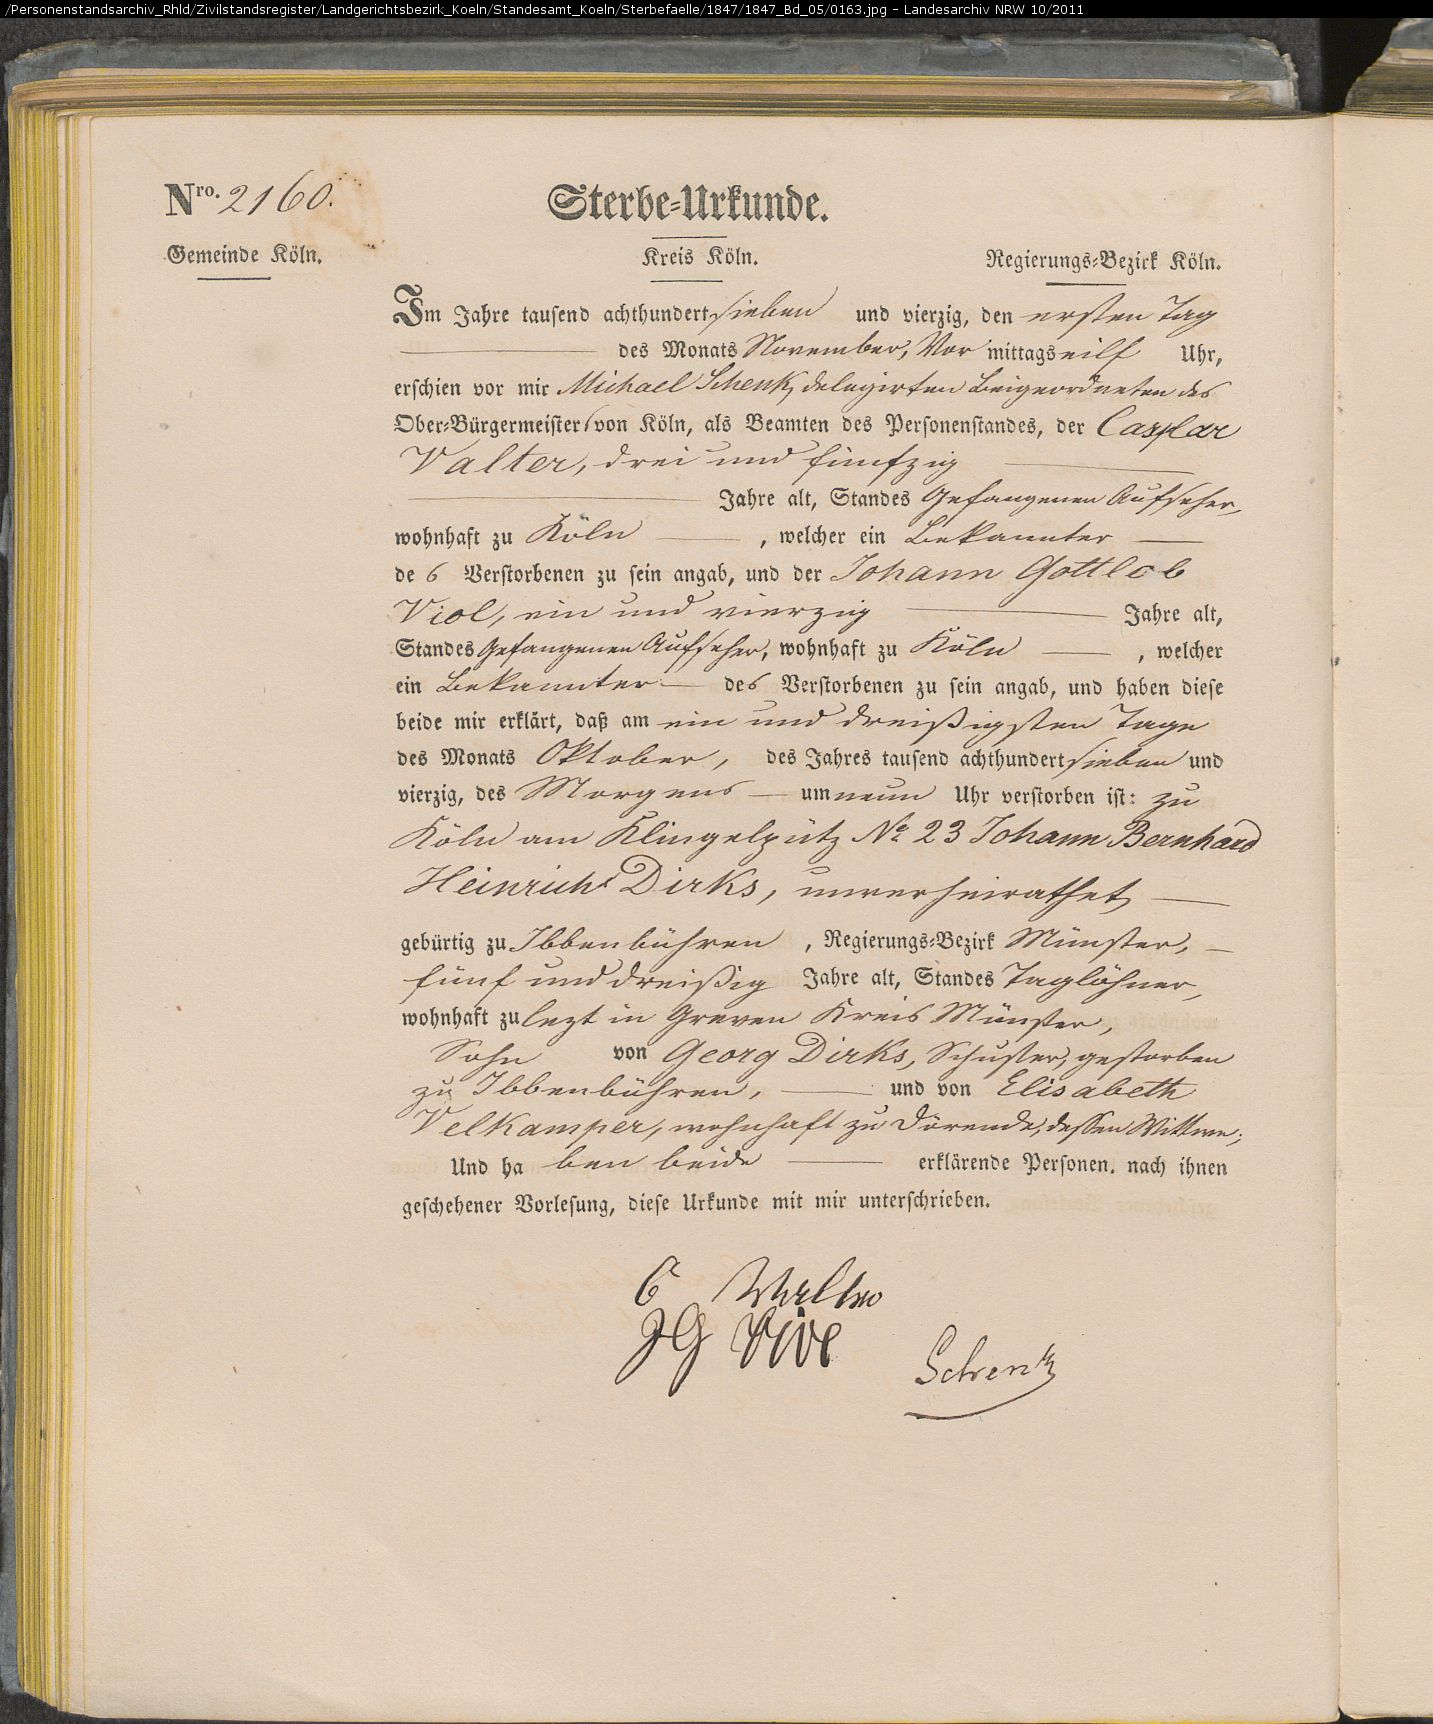 /Personenstandsarchiv_Rhld/Zivilstandsregister/Landgerichtsbezirk_Koeln/Standesamt_Koeln/Sterbefaelle/1847/1847_Bd_05/0163.jpg - Landesarchiv NRW 10/2011
Nro. 2160.
Sterbe-Urkunde.
Gemeinde Köln. Kreis Köln. Regierungs-Bezirk Köln.
Im Jahre tausend achthundert sieben und vierzig, den ersten Tag
des Monats November, Vor mittags eilf Uhr,
erschien vor mir Michael Schenk, delegirten Beigeordneten des
Ober-Bürgermeisters von Köln, als Beamten des Personenstandes, der Caspar
Valter, drei und fünfzig
Jahre alt, Standes Gefangenen Aufseher,
wohnhaft zu Köln, welcher ein Bekannter
des Verstorbenen zu sein angab, und der Johann Gottlob
Viol, ein und vierzig Jahre alt,
Standes Gefangenen Aufseher, wohnhaft zu Köln, welcher
ein Bekannter des Verstorbenen zu sein angab, und haben diese
beide mir erklärt, daß am ein und dreißigsten Tage
des Monats Oktober, des Jahres tausend achthundert sieben und
vierzig, des Morgens um neun Uhr verstorben ist: zu
Köln am Klingelpütz No. 23 Johann Bernhard
Heinrich Dirks, unverheirathet,
gebürtig zu Ibbenbühren, Regierungs-Bezirk Münster,
fünf und dreißig Jahre alt, Standes Taglöhner,
wohnhaft zulezt in Greven Kreis Münster,
Sohn von Georg Dirks, Schuster, gestorben
zu Ibbenbühren, und von Elisabeth
Velkamper, wohnhaft zu Dörende, dessen Wittwe;
Und haben beide erklärende Personen, nach ihnen
geschehener Vorlesung, diese Urkunde mit mir unterschrieben.
C Walter
JG Viol
Schenk